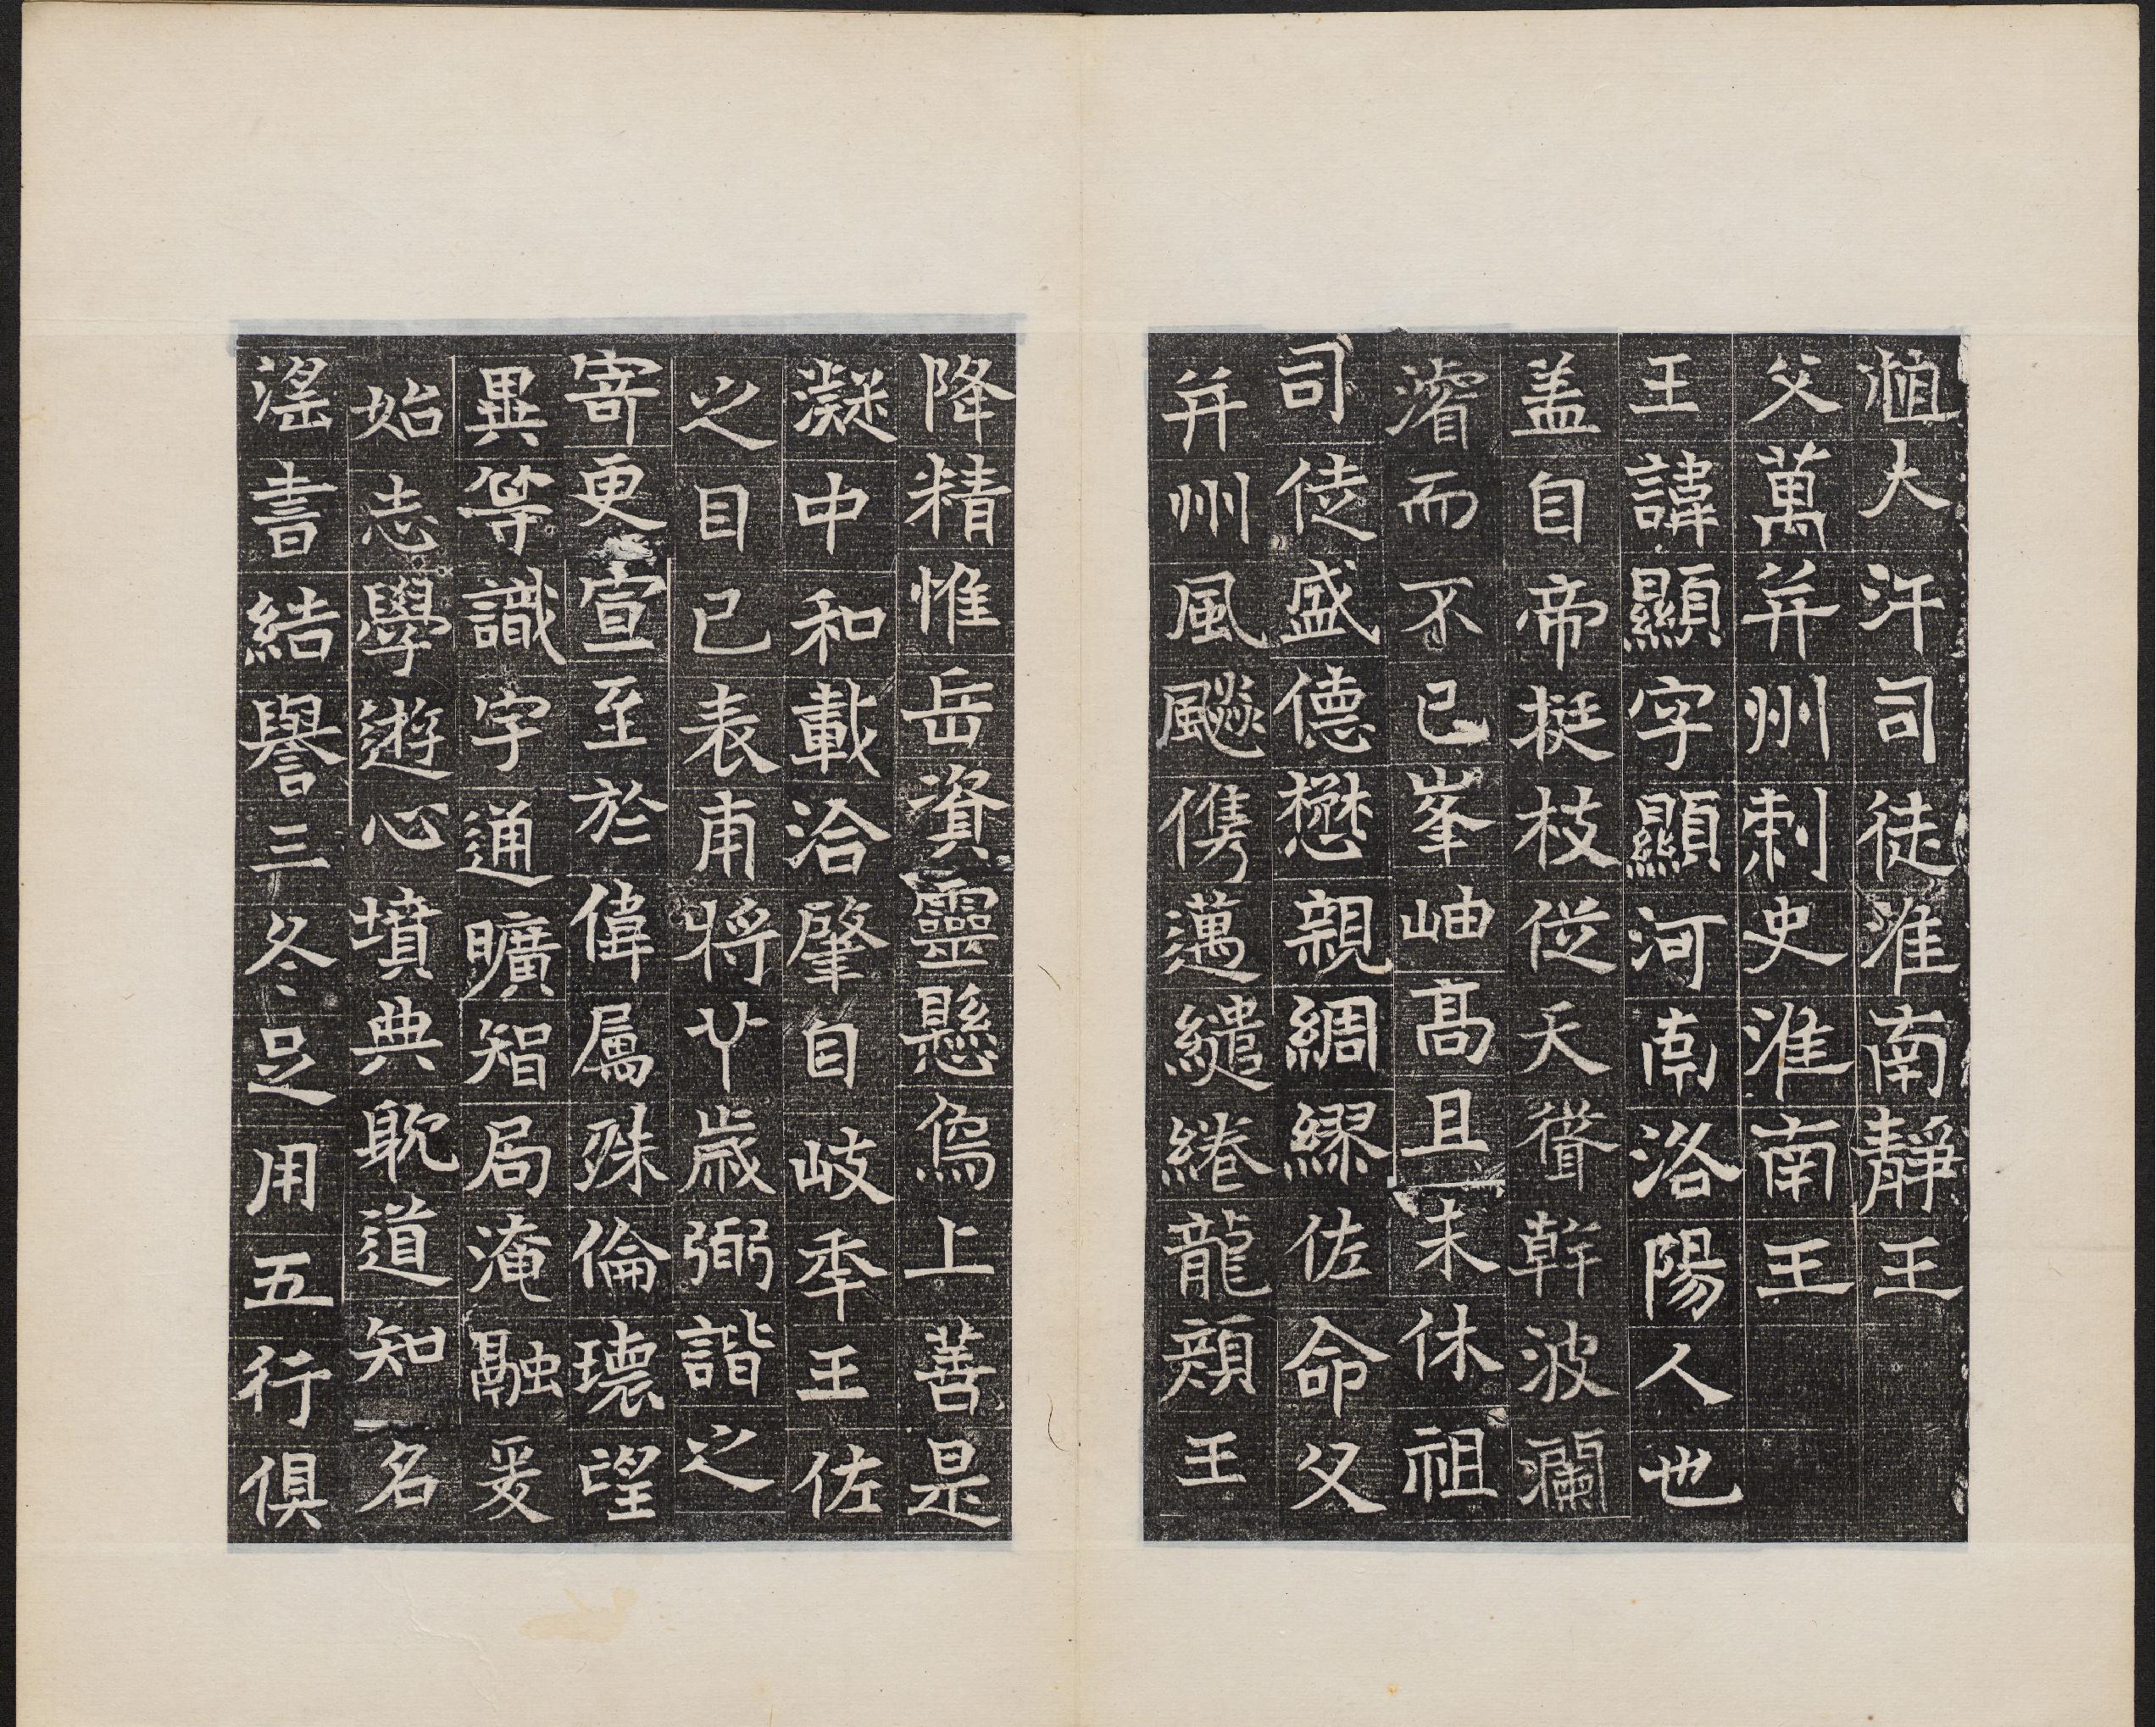 瀄大汗司徒淮南靜王
父萬并州刺史淮南王
王諱顯字顯河南洛陽人也
盖自帝挺枝從天聳幹波瀾
濬而不已峯岫高且未休祖
司徒盛德懋親綢繆佐命父
并州風飈儁邁繾綣龍頬王
降精惟岳資靈懸烏上善是
凝中和載洽肇自岐年王佐
之目已表甫將丱歲弼諧之
寄更宣至於偉属殊倫瓌望
異等識字通曠智局淹融爰
始志學遊心墳典耽道知名
滛書結譽三冬足用五行俱